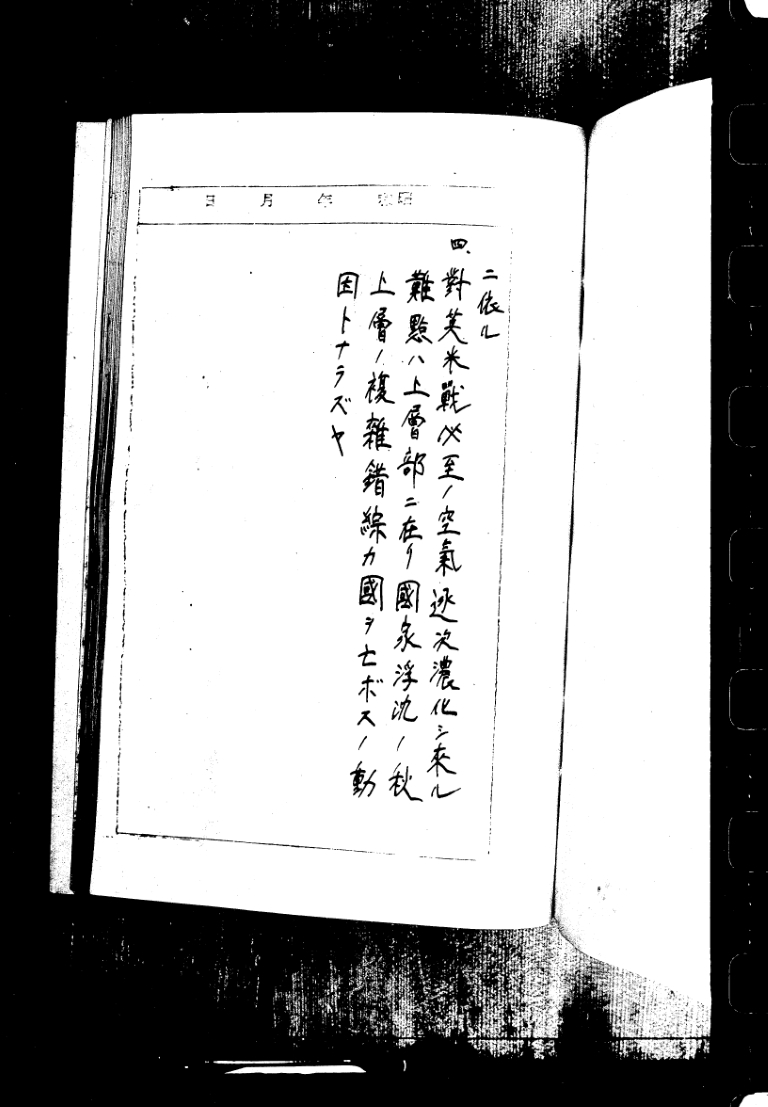 昭和 年 月 日
ニ依ル
四、對英米戰必至ノ空氣逐次濃化シ來ル
難點ハ上層部ニ在リ國家浮沈ノ秋
上層ノ複雜錯綜カ國ヲ亡ボスノ動
因トナラズヤ